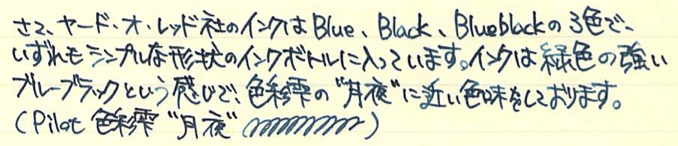 さて、ヤード・オ・レッド社のインクはBlue、Black、Blueblackの3色で、
いずれもシンプルな形状のインクボトルに入っています。インクは緑色の強い
ブルーブラックという感じで、色彩雫の"月夜"に近い色味をしております。
(Pilot 色彩雫 "月夜" )